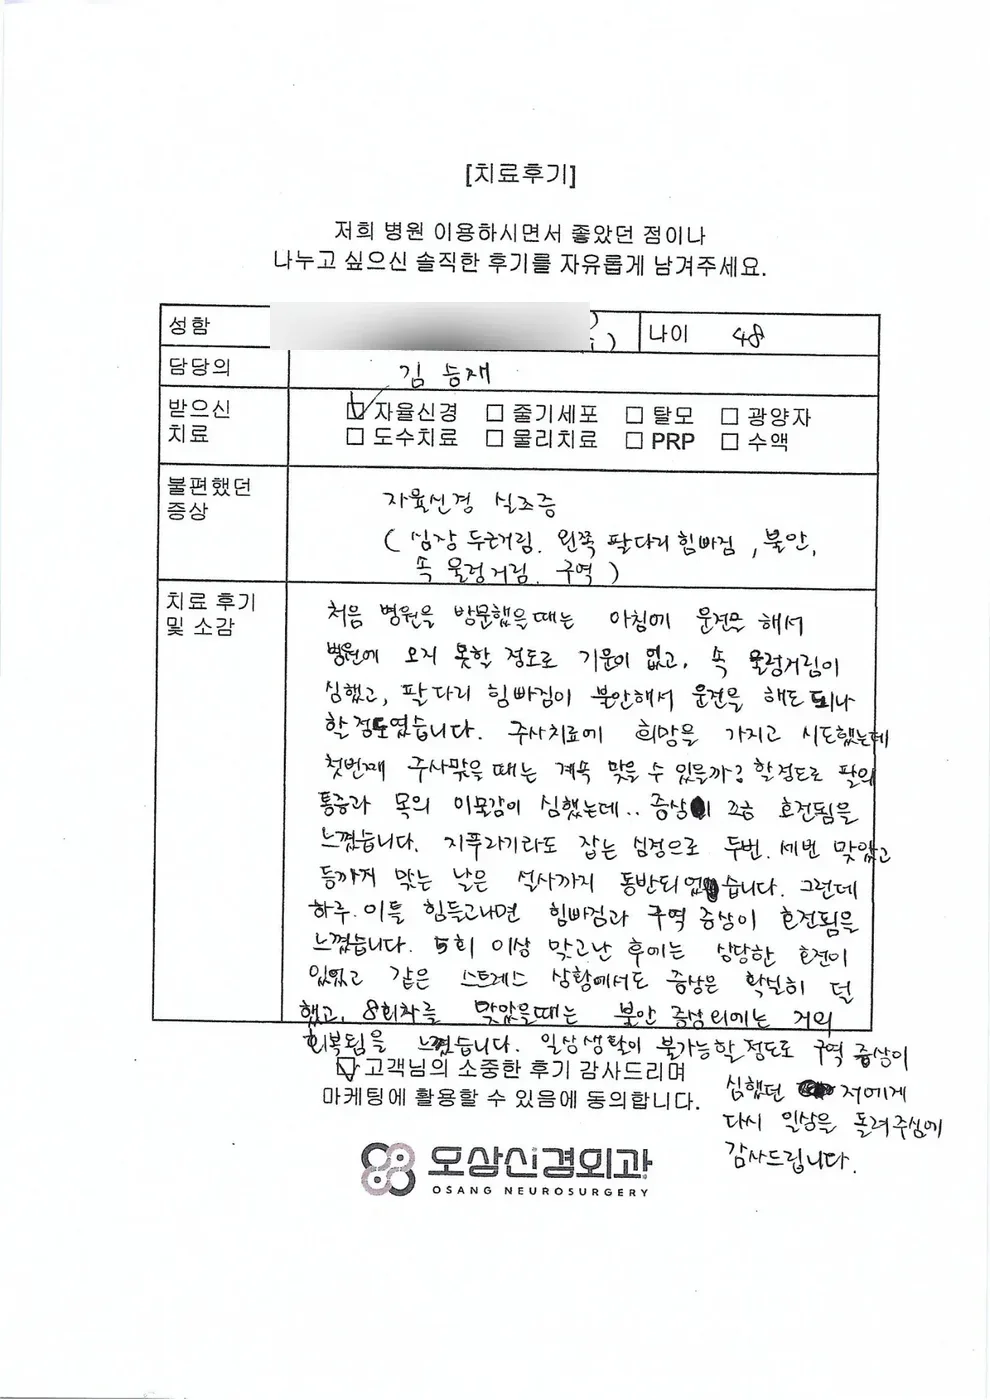 [치료후기]
저희 병원 이용하시면서 좋았던 점이나
나누고 싶으신 솔직한 후기를 자유롭게 남겨주세요.
성함
나이 48
담당의 김승재
받으신 ☑ 자율신경 □ 줄기세포 □ 탈모 □ 광양자
치료 □ 도수치료 □ 물리치료 □ PRP □ 수액
불편했던
증상
자율신경 실조증
( 심장 두근거림. 왼쪽 팔다리 힘빠짐, 불안,
속 울렁거림. 구역 )
치료 후기
및 소감
처음 병원을 방문했을때는 아침에 운전을 해서
병원에 오지 못할 정도로 기운이 없고, 속 울렁거림이
심했고, 팔다리 힘빠짐이 불안해서 운전을 해도 되나
할정도였습니다. 주사치료에 희망을 가지고 시도했는데
첫번째 주사맞을때는 계속 맞을 수 있을까? 할정도로 팔의
통증과 목의 이물감이 심했는데.. 증상이 조금 호전됨을
느꼈습니다. 지푸라기라도 잡는 심정으로 두번. 세번 맞았고
등까지 맞는 날은 설사까지 동반되었습니다. 그런데
하루. 이틀 힘들고나면 힘빠짐과 구역 증상이 호전됨을
느꼈습니다. 5회 이상 맞고난 후에는 상당한 호전이
있었고 같은 스트레스 상황에서도 증상은 확실히 덜
했고, 8회차를 맞았을때는 불안 증상외에는 거의
회복됨을 느꼈습니다. 일상생활이 불가능할정도로 구역 증상이
심했던 저에게
다시 일상을 돌려주심에
감사드립니다.
☑ 고객님의 소중한 후기 감사드리며
마케팅에 활용할 수 있음에 동의합니다.
오상신경외과
OSANG NEUROSURGERY